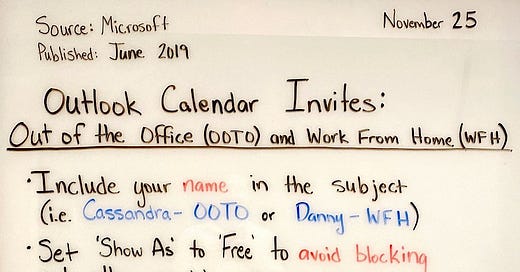 Source: Microsoft
November 25
Published: June 2019
Outlook Calendar Invites:
Out of the Office (OOTO) and Work From Home (WFH)
• Include your name in the subject
(i.e. Cassandra - OOTO or Danny - WFH)
• Set 'Show As' to 'Free' to avoid blocking